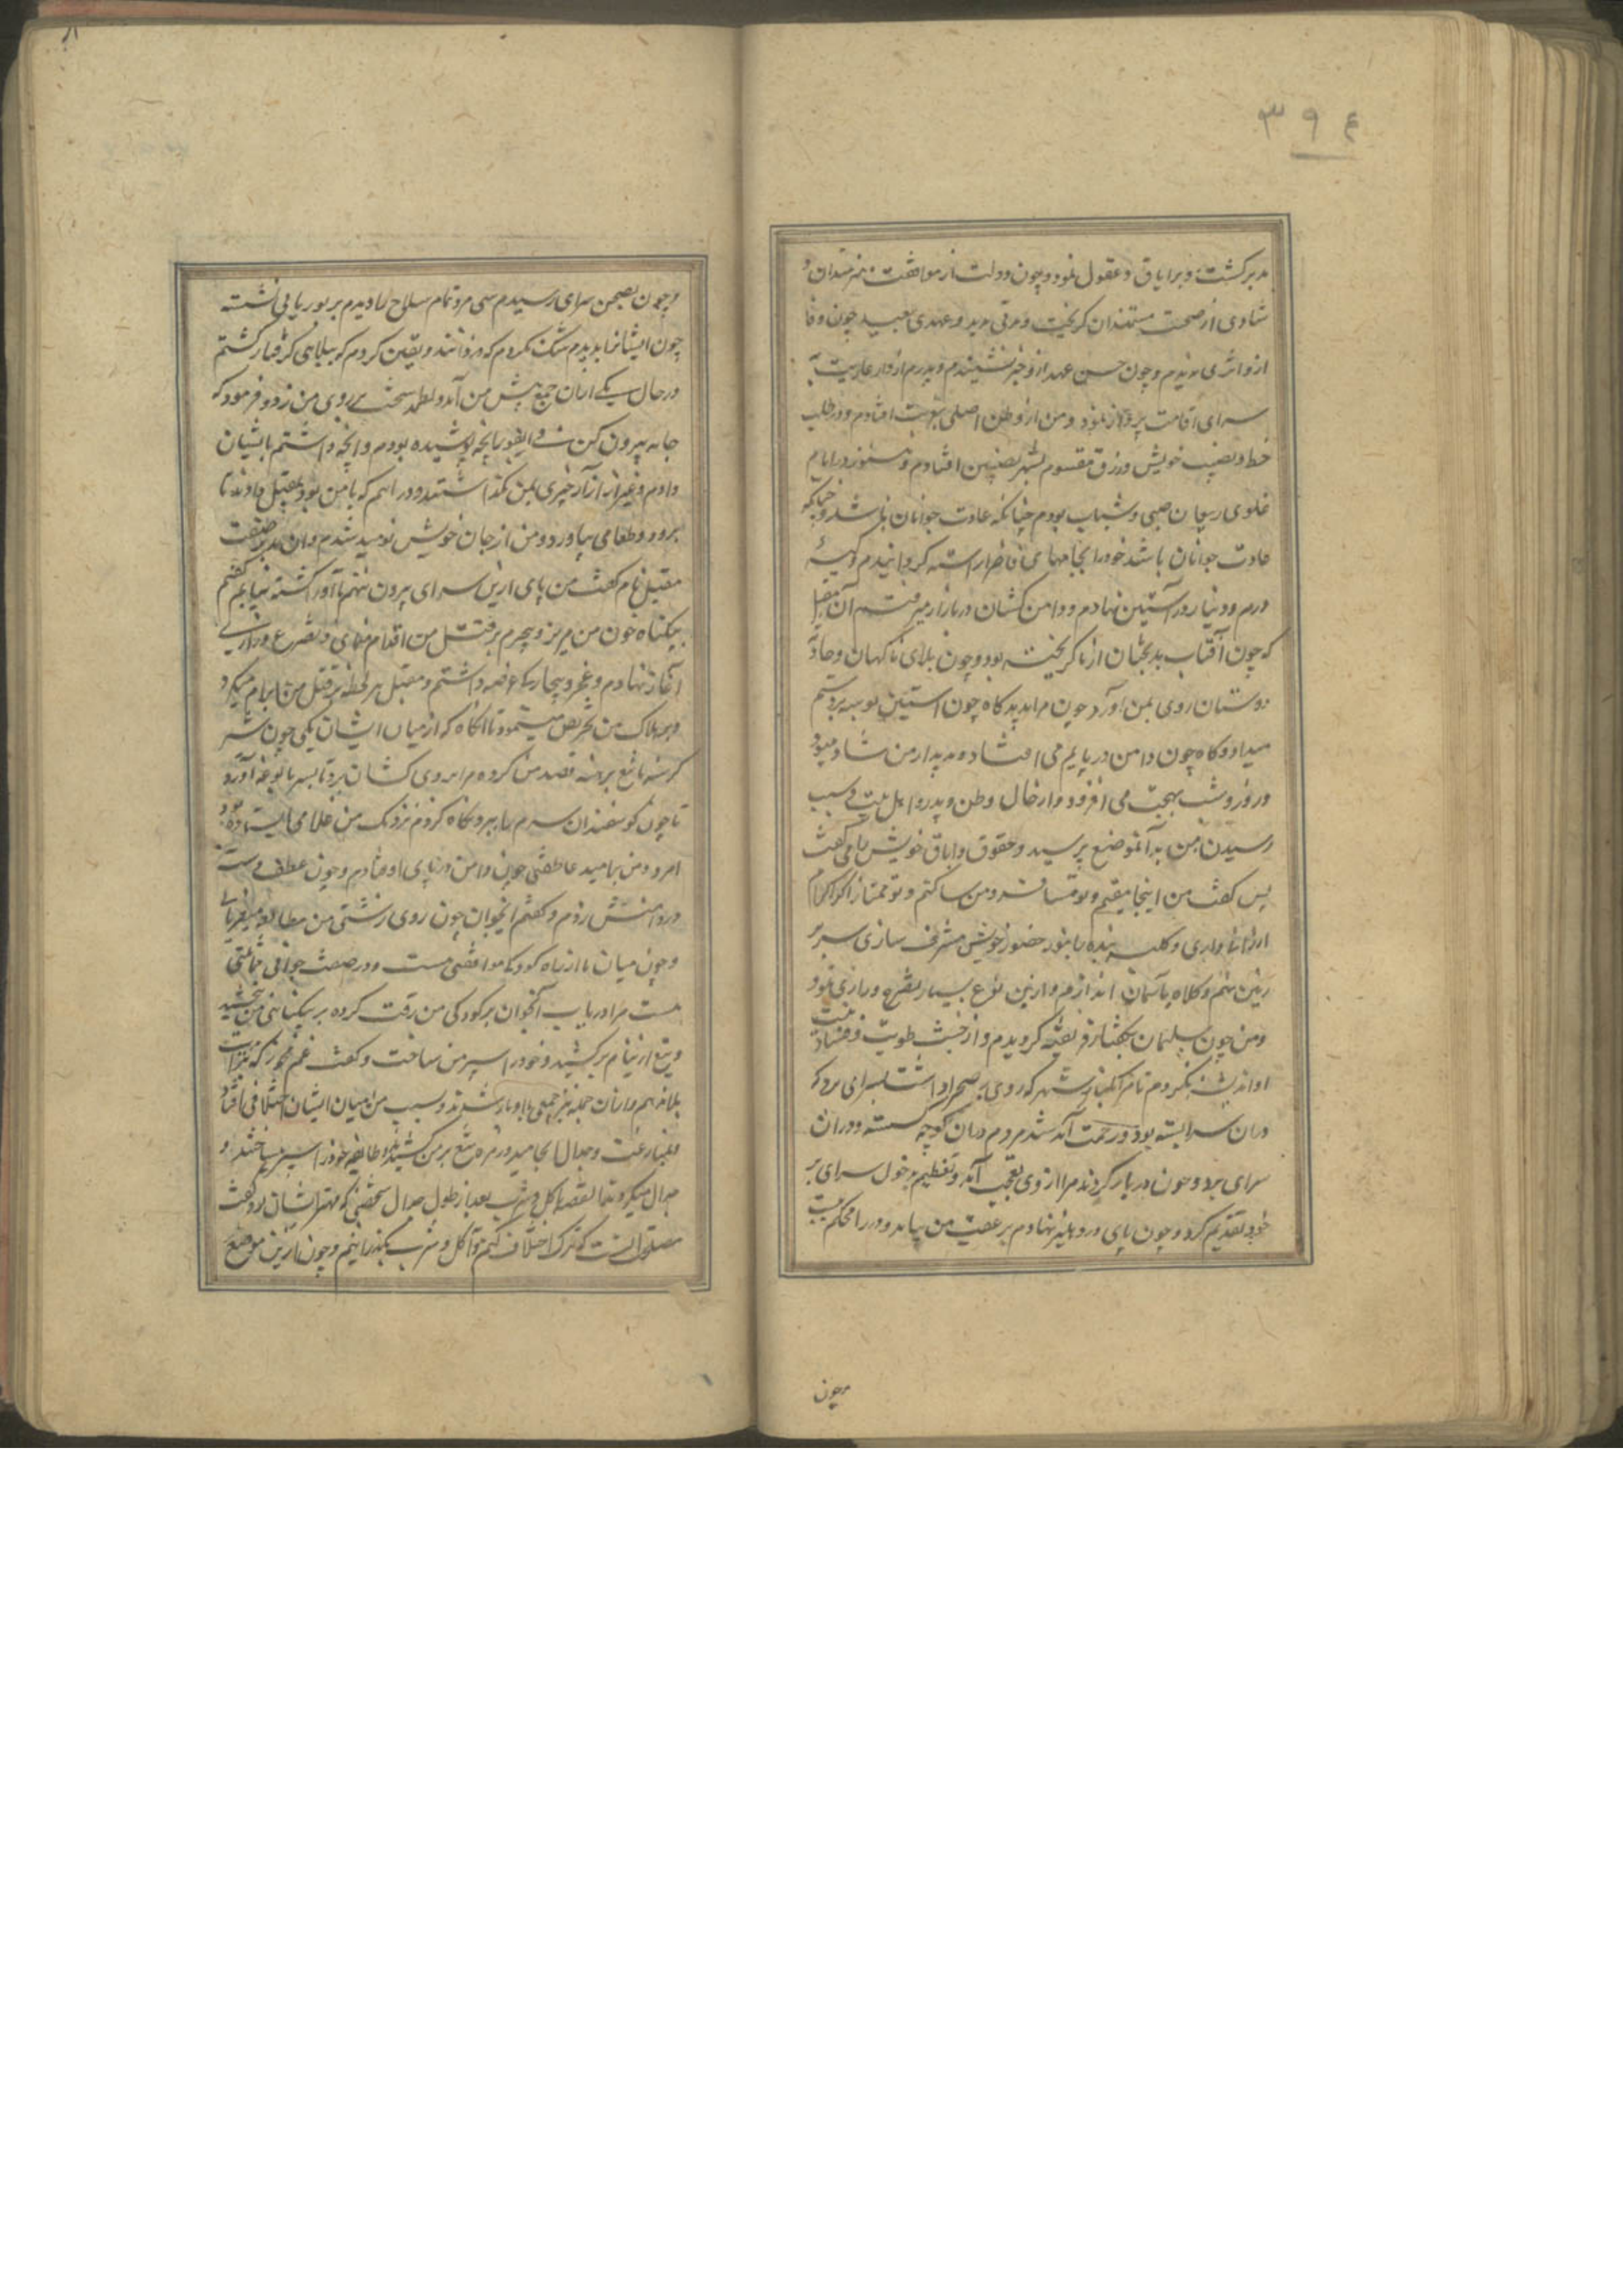 ۳۹۴
مدبر گشت و بر اباق و عقول نمود و چون دولت از موافقت هنرمندان و
شادی از صحبت مستمندان گریخت و مدتی مدید و عهدی بعید چون وفا
ازو اثری ندیدم و چون حسن عهد ازو خبر نشنیدم و پدرم از دار عاریت به
سرای اقامت پرواز نمود و من از وطن اصلی بغربت افتادم و در طلب
حظ و نصیب خویش و رزق مقسوم بشهر نصیبین افتادم و هنوز در ایام
غلوای ریعان صبی و شباب بودم چنانکه عادت جوانان باشد و چنانکه
عادت جوانان باشد خود را بجامهای فاخر آراسته گردانیدم و کیسهٔ
درم و دینار در آستین نهادم و دامن کشان در بازار میرفتم آن مقبل
که چون آفتاب بدبختان از ما گریخته بود و چون بلای ناگهان و حادثه
دوستان روی بمن آورد چون مرا بدید گاه چون آستین بوسه بر دستم
میداد و گاه چون دامن در پایم می افتاد و بدیدار من شاد میبود
و روز و شب بهجت می افزود و از حال وطن و پدر و اهل بیت و سبب
رسیدن من بدآنموضع پرسید و عقوق و اباق خویش را می گفت
پس گفت من اینجا مقیم و تو مسافر و من ساکنم و تو مجتاز اگر اکرام
ارزانی داری و کلبه بنده را بنور حضور خویش مشرف سازی سر بر
زمین نهم و کلاه بآسمان اندازم و ازین نوع بسیار تضرع و زاری نمود
و من چون سلیمان بگفتار فریفته گردیدم و از خبث طویت و فساد نیت
او اندیشه نکردم تا مرا بکنار شهر که روی بصحرا داشت بسرای برد که
در آن سرا بسته بود و زحمت آمد شد مردم در آن کوچه گسسته و در آن
سرای بزد و چون در باز کردند مرا از وی تعجب آمد و تعظیم دخول سرای بر
خود تقدیم کرد و چون پای در دهلیز نهادم بر عقب من بیامد و در را محکم ببست
وچون
و چون بصحن سرای رسیدم سی مرد تمام سلاح را دیدم بر بوریایی نشسته
چون ایشانرا بدیدم شک نکردم که دزدانند و یقین کردم که ببلایی گرفتار گشتم
در حال یکی از آن جمع پیش من آمد و لطمه سخت بر روی من زد و فرمود که
جامه بیرون کن فی الفور آنچه پوشیده بودم و آنچه داشتم بایشان
دادم و غیر از ازار چیزی بمن نگذاشتند و دراهم که با من بود بمقبل دادند تا
برود و طعامی بیاورد و من از جان خویش نومید شدم و آن مدبر صفت
مقبل نام گفت من پای ازین سرای بیرون ننهم تا او را کشته نیابم گفتم
بیگناه خون من مریز و بیجرم بر قتل من اقدام منمای و تضرع و زاری
آغاز نهادم و عجز و بیچارگی عرضه داشتم و مقبل هر لحظه بر قتل من ابرام میکرد
و بر هلاک من تحریض مینمود تا آنگاه که از میان ایشان یکی چون شیر
گرسنه با تیغ برهنه قصد من کرده مرا بروی کشان برد تا بسر بالوعه آورد
تا چون گوسفندان سرم را ببرد نگاه کردم نزدیک من غلامی ایستاده بود
امرد و من بامید عاطفتی چون دامن در پای او فتادم و چون عطف دست
در دامنش زدم و گفتم ای جوان چون روی زشتی من مطالعه میفرمایی
و چون میان ما از راه کودکی موافقتی هست و در صفت جوانی مماثلتی
هست مرا دریاب آنجوان بر کودکی من رقت کرده بر بیگناهی من بخشید
و تیغ از نیام برکشید و خود را سپر من ساخت و گفت غم مخور که ترا ازین
بلا برهانم و از آن جمله نیز جمعی با او یار شدند و سبب من میان ایشان اختلافی افتاد
و بمنازعت و جدال انجامید و زمره تیغ بر من کشیدند و طایفه خود را سپر میساختند و
جدال میکردند تا بقصه اکل و شرب بعد از طول جدال شخصی که مهتر ایشان بود گفت
مصلحت اینست که ترک اختلاف کنیم و اکل و شرب بگذرانیم و چون ازین موضع